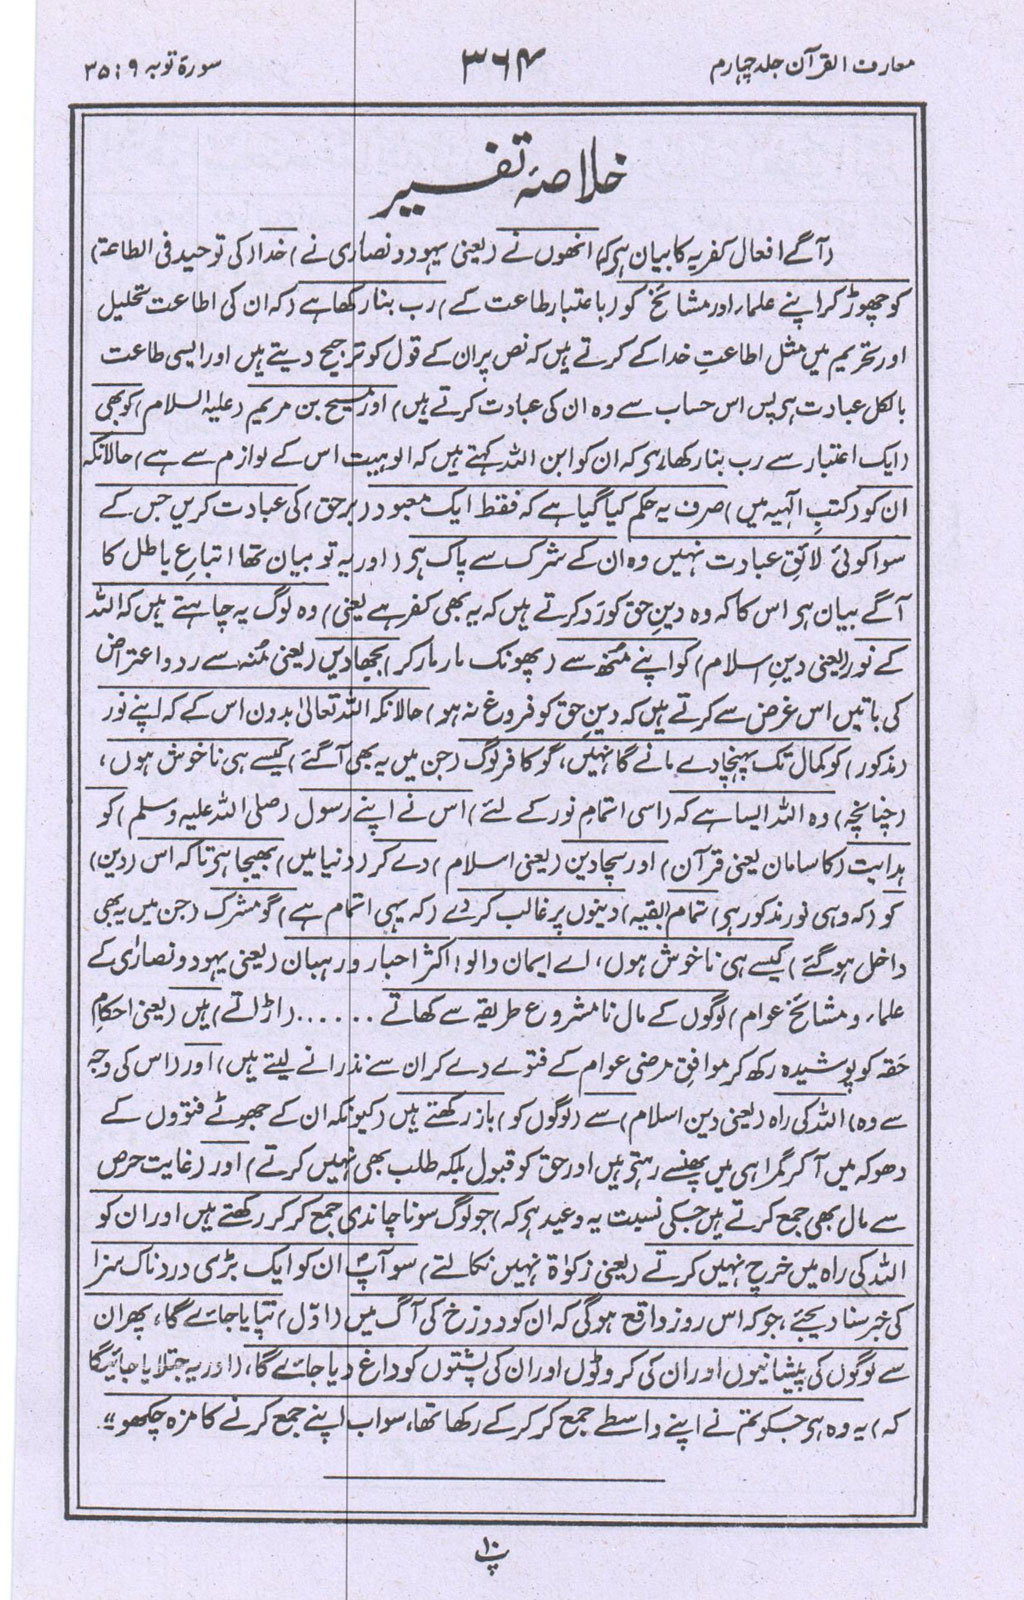 معارف القرآن جلد چہارم
۳۶۴
سورۃ توبہ ۹ : ۳۵
خلاصۂ تفسیر
(آگے افعال کفریہ کا بیان ہر کہ) انھوں نے (یعنی یہود و نصاریٰ نے) خدا (کی توحید فی الطاعۃ)
کو چھوڑ کر اپنے علماء اور مشائخ کو (باعتبار طاعت کے) رب بنا رکھا ہے (کہ ان کی اطاعت تحلیل
اور تحریم میں مثل اطاعتِ خدا کے کرتے ہیں کہ نص پر ان کے قول کو ترجیح دیتے ہیں اور ایسی طاعت
بالکل عبادت ہر پس اس حساب سے وہ ان کی عبادت کرتے ہیں) اور مسیح بن مریم (علیہ السلام) کو بھی
(ایک اعتبار سے رب بنا رکھا ہر کہ ان کو ابن اللہ کہتے ہیں کہ الوہیت اس کے لوازم سے ہے) حالانکہ
ان کو (کتبِ الٰہیہ میں) صرف یہ حکم کیا گیا ہے کہ فقط ایک معبود (برحق) کی عبادت کریں جس کے
سوا کوئی لائقِ عبادت نہیں وہ ان کے شرک سے پاک ہر (اور یہ تو بیان تھا اتباعِ باطل کا
آگے بیان ہر اس کا کہ وہ دینِ حق کو رَد کرتے ہیں کہ یہ بھی کفر ہے یعنی) وہ لوگ یہ چاہتے ہیں کہ اللہ
کے نور (یعنی دینِ اسلام) کو اپنے مُنھ سے (پھونک مار مار کر) بجھا دیں (یعنی مُنہ سے رد و اعتراض
کی باتیں اس غرض سے کرتے ہیں کہ دینِ حق کو فروغ نہ ہو) حالانکہ اللہ تعالیٰ بدون اس کے کہ اپنے نور
(مذکور) کو کمال تک پہنچا دے مانے گا نہیں، گو کافر لوگ (جن میں یہ بھی آگئے) کیسے ہی ناخوش ہوں،
(چنانچہ) وہ اللہ ایسا ہے کہ (اسی اتمامِ نور کے لئے) اس نے اپنے رسول (صلی اللہ علیہ وسلم) کو
ہدایت (کا سامان یعنی قرآن) اور سچا دین (یعنی اسلام) دے کر (دنیا میں) بھیجا ہر تاکہ اس (دین)
کو (کہ وہی نور مذکور ہر) تمام (بقیہ) دینوں پر غالب کر دے (کہ یہی اتمام ہے) گو مشرک (جن میں یہ بھی
داخل ہو گئے) کیسے ہی ناخوش ہوں، اے ایمان والو! اکثر احبار و رہبان (یعنی یہود و نصاریٰ کے
علماء و مشائخ عوام) لوگوں کے مال نامشروع طریقہ سے کھاتے ...... (اڑاتے) ہیں (یعنی احکامِ
حَقہ کو پوشیدہ رکھ کر موافقِ مرضی عوام کے فتوے دے کر ان سے نذرانے لیتے ہیں) اور (اس کی وجہ
سے وہ) اللہ کی راہ (یعنی دین اسلام) سے (لوگوں کو) باز رکھتے ہیں (کیونکہ ان کے جھوٹے فتووں کے
دھوکہ میں آکر گمراہی میں پھنسے رہتے ہیں اور حق کو قبول بلکہ طلب بھی نہیں کرتے) اور (غایت حرص
سے مال بھی جمع کرتے ہیں جسکی نسبت یہ وعید ہر کہ) جو لوگ سونا چاندی جمع کر کر رکھتے ہیں اور ان کو
اللہ کی راہ میں خرچ نہیں کرتے (یعنی زکوٰۃ نہیں نکالتے) سو آپؐ ان کو ایک بڑی دردناک سزا
کی خبر سنا دیجئے، جو کہ اس روز واقع ہوگی کہ ان کو دوزخ کی آگ میں (اوّل) تپایا جاۓ گا، پھر ان
سے لوگوں کی پیشانیوں اور ان کی کروٹوں اور ان کی پشتوں کو داغ دیا جاۓ گا، (اور یہ جتلایا جائیگا
کہ) یہ وہ ہر جسکو تم نے اپنے واسطے جمع کر کرکے رکھا تھا، سو اب اپنے جمع کرنے کا مزہ چکھو ؞
پ۱۰